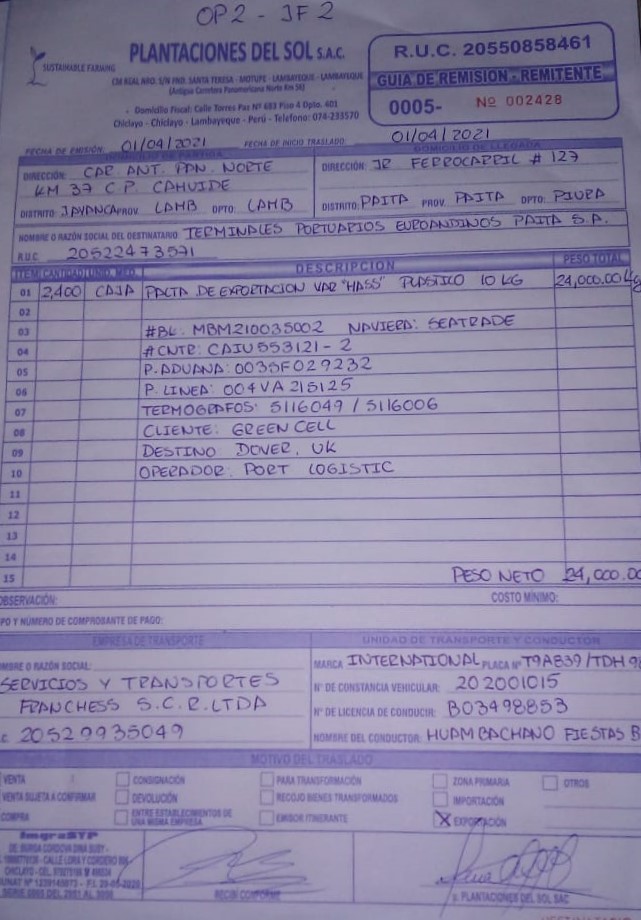 OP2 - JF2
SUSTAINABLE FARMING
PLANTACIONES DEL SOL S.A.C.
CM REAL NRO. S/N FND. SANTA TERESA - MOTUPE - LAMBAYEQUE - LAMBAYEQUE
(Antigua Carretera Panamericana Norte Km 56)
- Domicilio Fiscal: Calle Torres Paz Nº 683 Piso 4 Dpto. 401
Chiclayo - Chiclayo - Lambayeque - Perú - Telefono: 074-233570
R.U.C. 20550858461
GUIA DE REMISION - REMITENTE
0005- Nº 002428
FECHA DE EMISIÓN: 01/04/2021 FECHA DE INICIO TRASLADO: 01/04/2021
DOMICILIO DE PARTIDA
DIRECCIÓN: CAR. ANT. PAN. NORTE
KM 37 C.P. CAHUIDE
DISTRITO: JAYANCA PROV. LAMB DPTO: LAMB
DOMICILIO DE LLEGADA
DIRECCIÓN: JR FERROCARRIL # 127
DISTRITO: PAITA PROV. PAITA DPTO: PIURA
NOMBRE O RAZÓN SOCIAL DEL DESTINATARIO: TERMINALES PORTUARIOS EUROANDINOS PAITA S.A.
R.U.C. 20522473571
ITEM CANTIDAD UNID. MED. DESCRIPCION PESO TOTAL
01 2,400 CAJA PALTA DE EXPORTACION VAR "HASS" PLASTICO 10 KG 24,000.00 Kg
02
03 #BL. MBM210035002 NAVIERA: SEATRADE
04 #CNTR: CAIU553121-2
05 P. ADUANA: 003SF029232
06 P. LINEA: 004VA215125
07 TERMOGRAFOS: 5116049 / 5116006
08 CLIENTE: GREEN CELL
09 DESTINO DOVER, UK
10 OPERADOR: PORT LOGISTIC
11
12
13
14
15 PESO NETO 24,000.00
OBSERVACIÓN: COSTO MÍNIMO:
PO Y NÚMERO DE COMPROBANTE DE PAGO:
EMPRESA DE TRANSPORTE
MBRE O RAZÓN SOCIAL:
SERVICIOS Y TRANSPORTES
FRANCHESS S.C.R.LTDA
C. 20529935049
UNIDAD DE TRANSPORTE Y CONDUCTOR
MARCA INTERNATIONAL PLACA Nº T9A839/TDH 98
Nº DE CONSTANCIA VEHICULAR: 202001015
Nº DE LICENCIA DE CONDUCIR: B03498853
NOMBRE DEL CONDUCTOR: HUAMBACHANO FIESTAS B
MOTIVO DEL TRASLADO
VENTA CONSIGNACIÓN PARA TRANSFORMACIÓN ZONA PRIMARIA OTROS
VENTA SUJETA A CONFIRMAR DEVOLUCIÓN RECOJO BIENES TRANSFORMADOS IMPORTACIÓN
COMPRA ENTRE ESTABLECIMIENTOS DE UNA MISMA EMPRESA EMISOR ITINERANTE X EXPORTACIÓN
DE: BURGA CORDOVA DINA SUSY -
RECIBI CONFORME
p. PLANTACIONES DEL SOL SAC